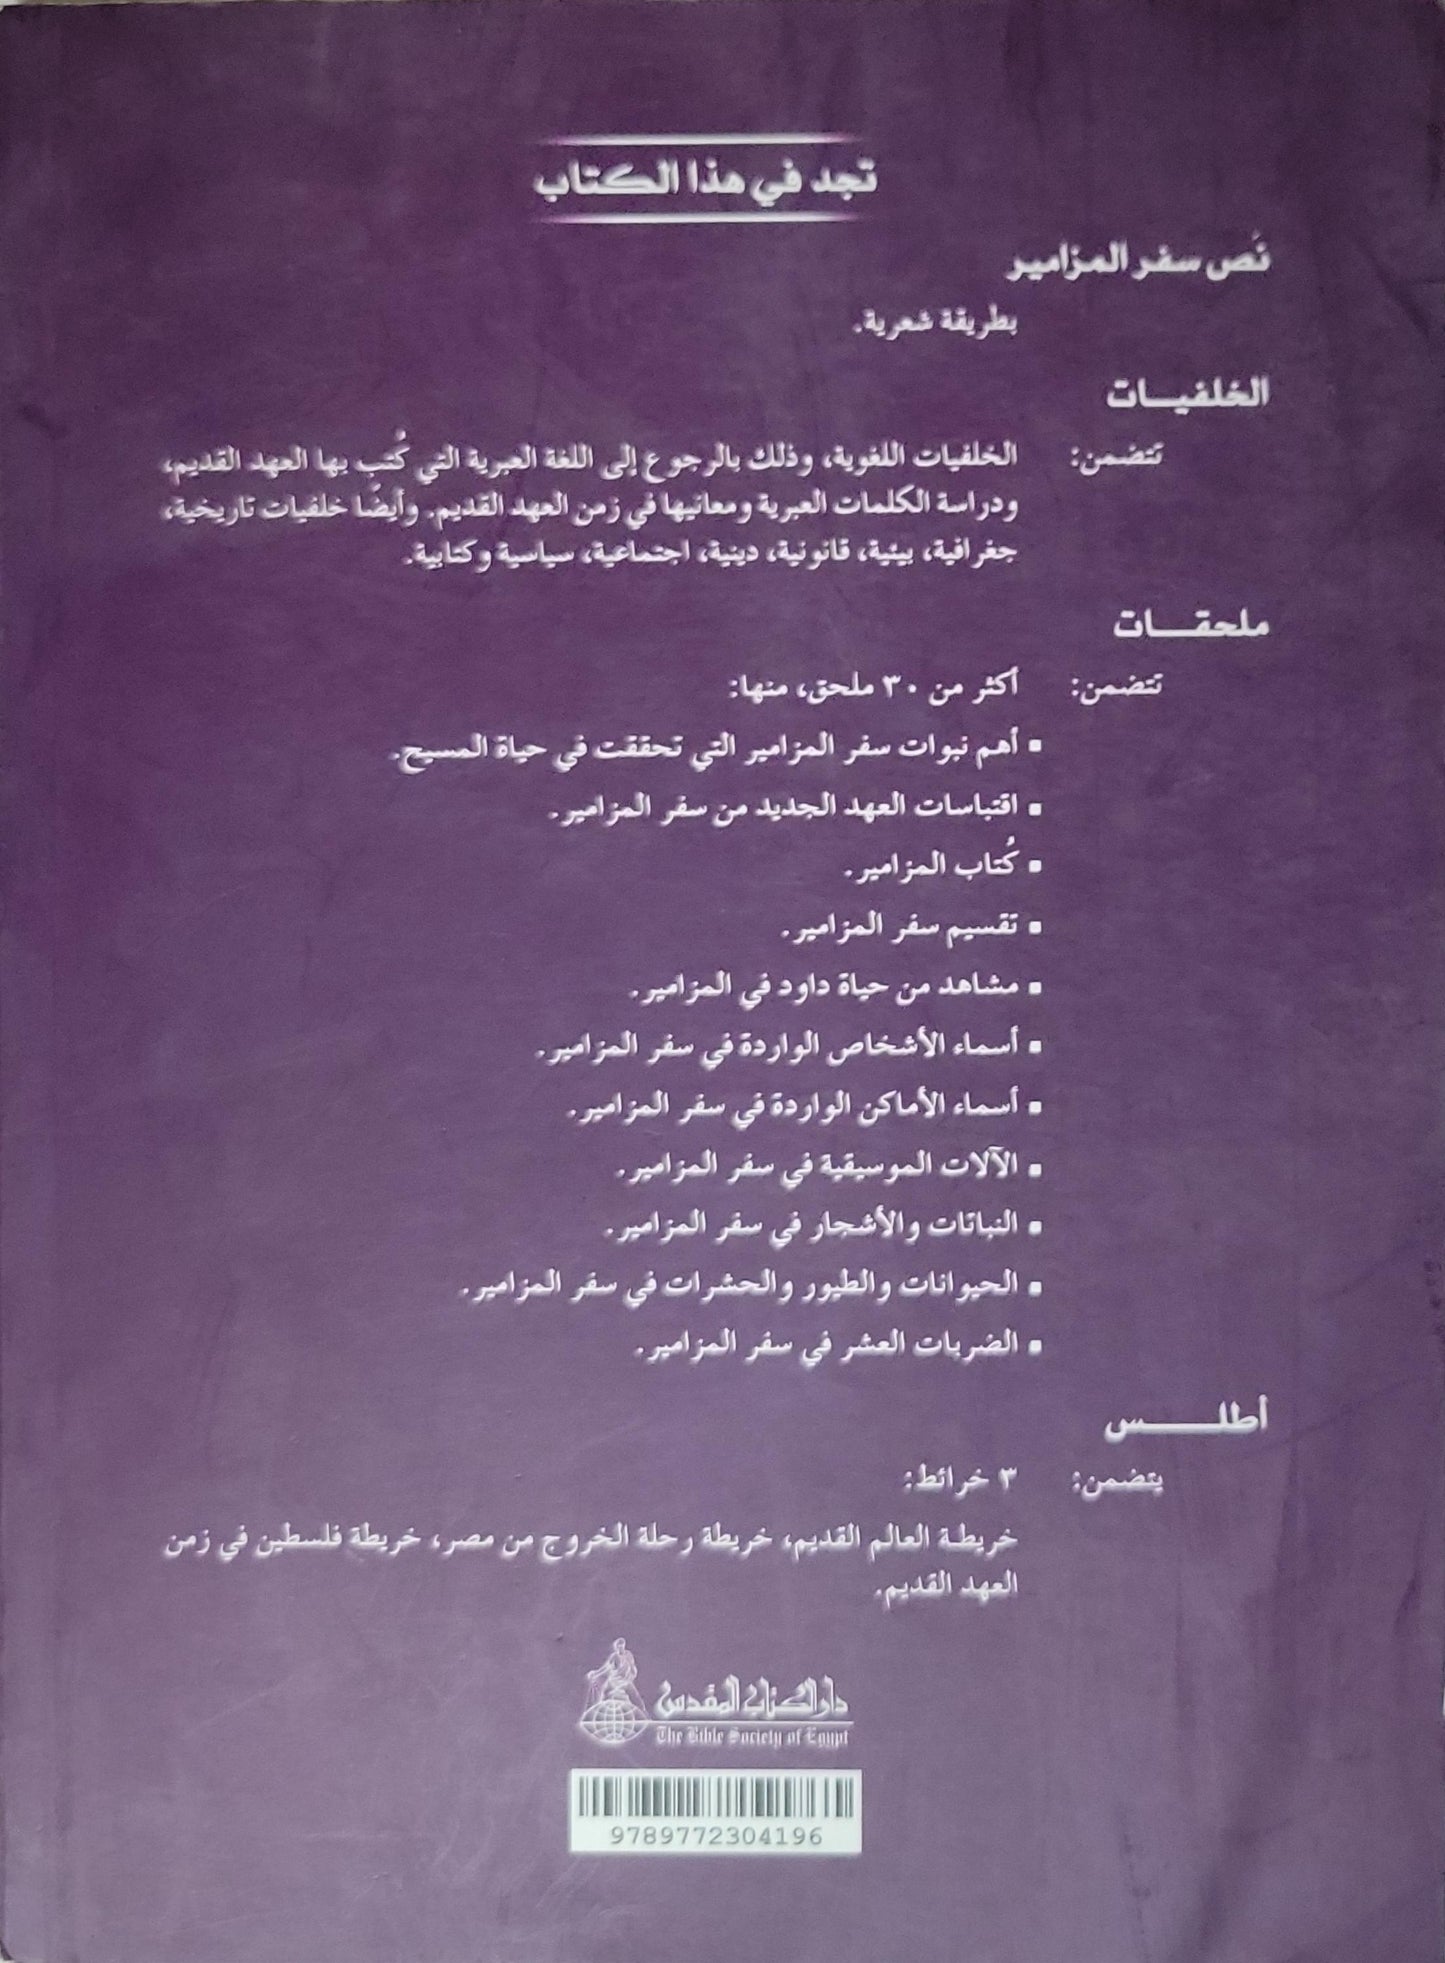 تجد في هذا الكتاب
نَص سفر المزامير
بطريقة شعرية.
الخلفيـــات
تتضمن: الخلفيات اللغوية، وذلك بالرجوع إلى اللغة العبرية التي كُتب بها العهد القديم،
ودراسة الكلمات العبرية ومعانيها في زمن العهد القديم. وأيضًا خلفيات تاريخية،
جغرافية، بيئية، قانونية، دينية، اجتماعية، سياسية وكتابية.
ملحقـــات
تتضمن: أكثر من ٣٠ ملحق، منها:
▪ أهم نبوات سفر المزامير التي تحققت في حياة المسيح.
▪ اقتباسات العهد الجديد من سفر المزامير.
▪ كُتاب المزامير.
▪ تقسيم سفر المزامير.
▪ مشاهد من حياة داود في المزامير.
▪ أسماء الأشخاص الواردة في سفر المزامير.
▪ أسماء الأماكن الواردة في سفر المزامير.
▪ الآلات الموسيقية في سفر المزامير.
▪ النباتات والأشجار في سفر المزامير.
▪ الحيوانات والطيور والحشرات في سفر المزامير.
▪ الضربات العشر في سفر المزامير.
أطلـــــس
يتضمن: ٣ خرائط:
خريطة العالم القديم، خريطة رحلة الخروج من مصر، خريطة فلسطين في زمن
العهد القديم.
دار الكتاب المقدس
The Bible Society of Egypt
9789772304196